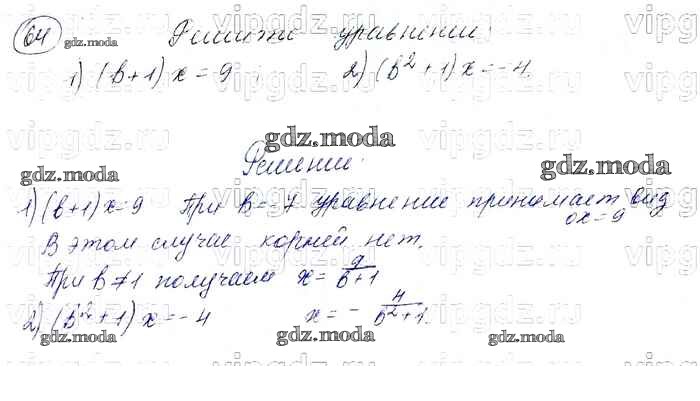 64 gdz.moda Решить уравнение:
1) (b+1)x=9 2) (b²+1)x=-4.
gdz.moda
Решение:
gdz.moda gdz.moda
1) (b+1)x=9 При b=-7 уравнение принимает вид
0x=9
В этом случае корней нет.
При b≠1 получаем x= 9/b+1
2) (b²+1)x=-4 x= - 4/b²+1.
gdz.moda gdz.moda gdz.moda